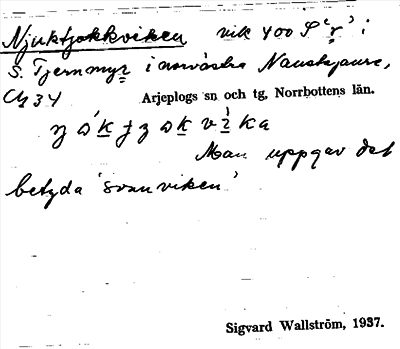 Njuktjokkviken vik 400 S
S. Tjernmyr i nordvästra Nauskjaure,
Arjeplogs sn och tg, Norrbottens län.
Man uppgav det
betyda 'svanviken'
Sigvard Wallström, 1937.